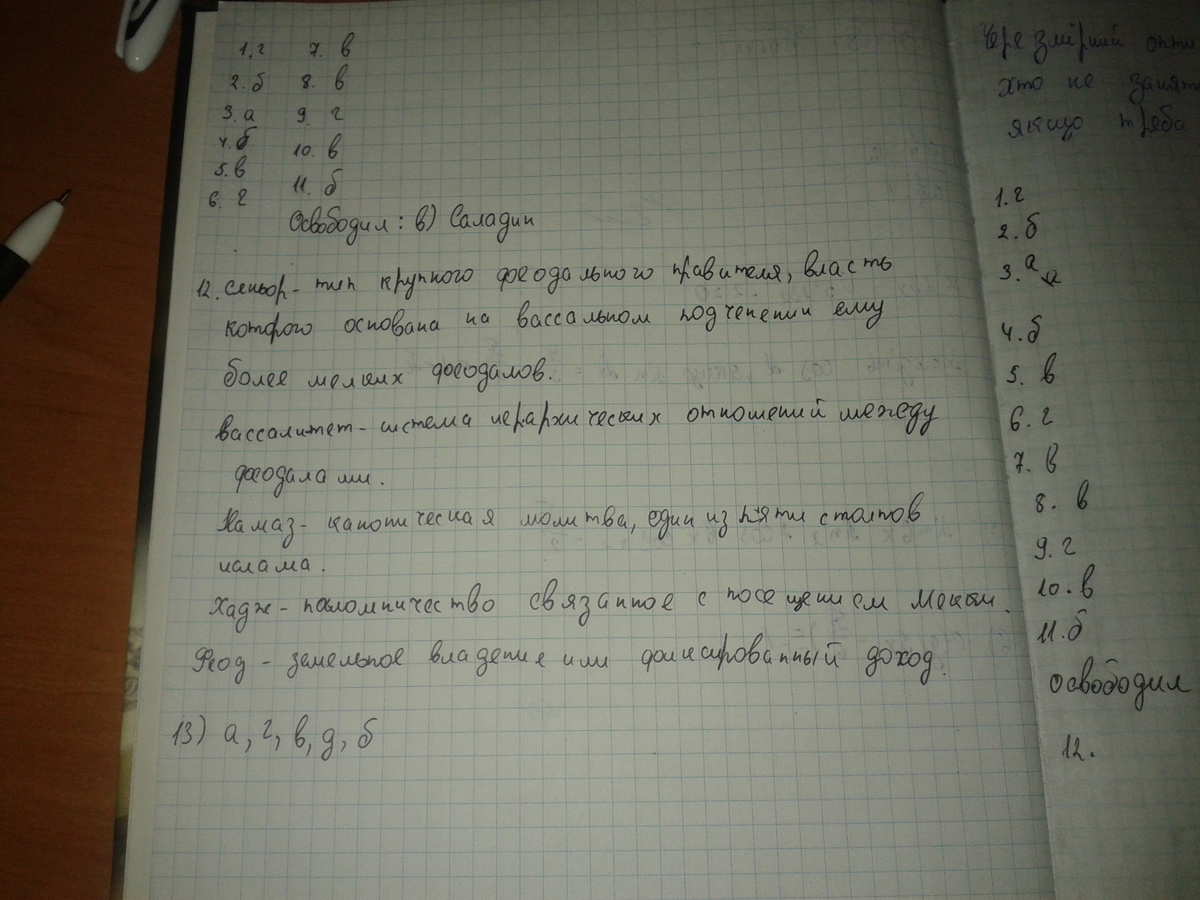 1. г 7. в
2. б 8. в
3. а 9. г
4. б 10. в
5. в 11. б
6. г
Освободил: в) Саладин
12. Сеньор - тип крупного феодального правителя, власть
которого основана на вассальном подченении ему
более мелких феодалов.
Вассалитет - система иерархических отношений между
феодалами.
Намаз - каноническая молитва, один из пяти столпов
ислама.
Хадж - паломничество связанное с посещением Мекки.
Феод - земельное владение или фиксированный доход.
13) а, г, в, д, б
Чрезмірний
хто не
якщо треба
1. г
2. б
3. а
4. б
5. в
6. г
7. в
8. в
9. г
10. в
11. б
Освободил
12.